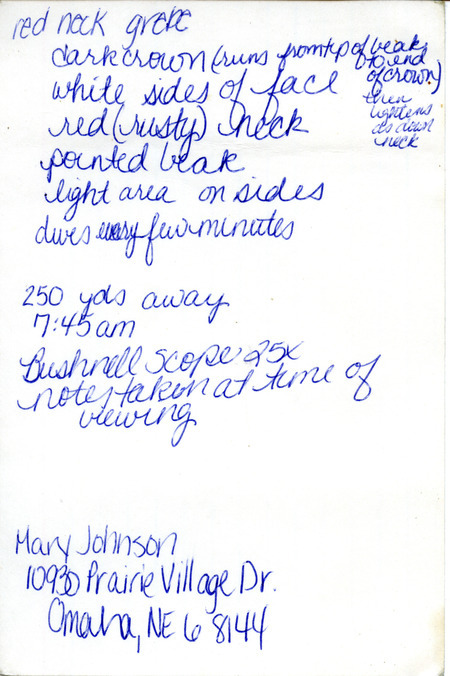 red neck grebe
dark crown (runs from tip of beak to end of crown.)
then lightens as down neck
white sides of face
red (rusty) neck
pointed beak
light area on sides
dives every few minutes
250 yds away
7:45am
Bushnell Scope 25x
notes taken at time of
viewing
Mary Johnson
10930 Prairie Village Dr.
Omaha, NE 68144